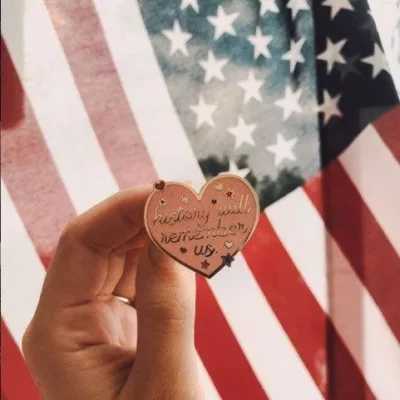 history will
remember
us.